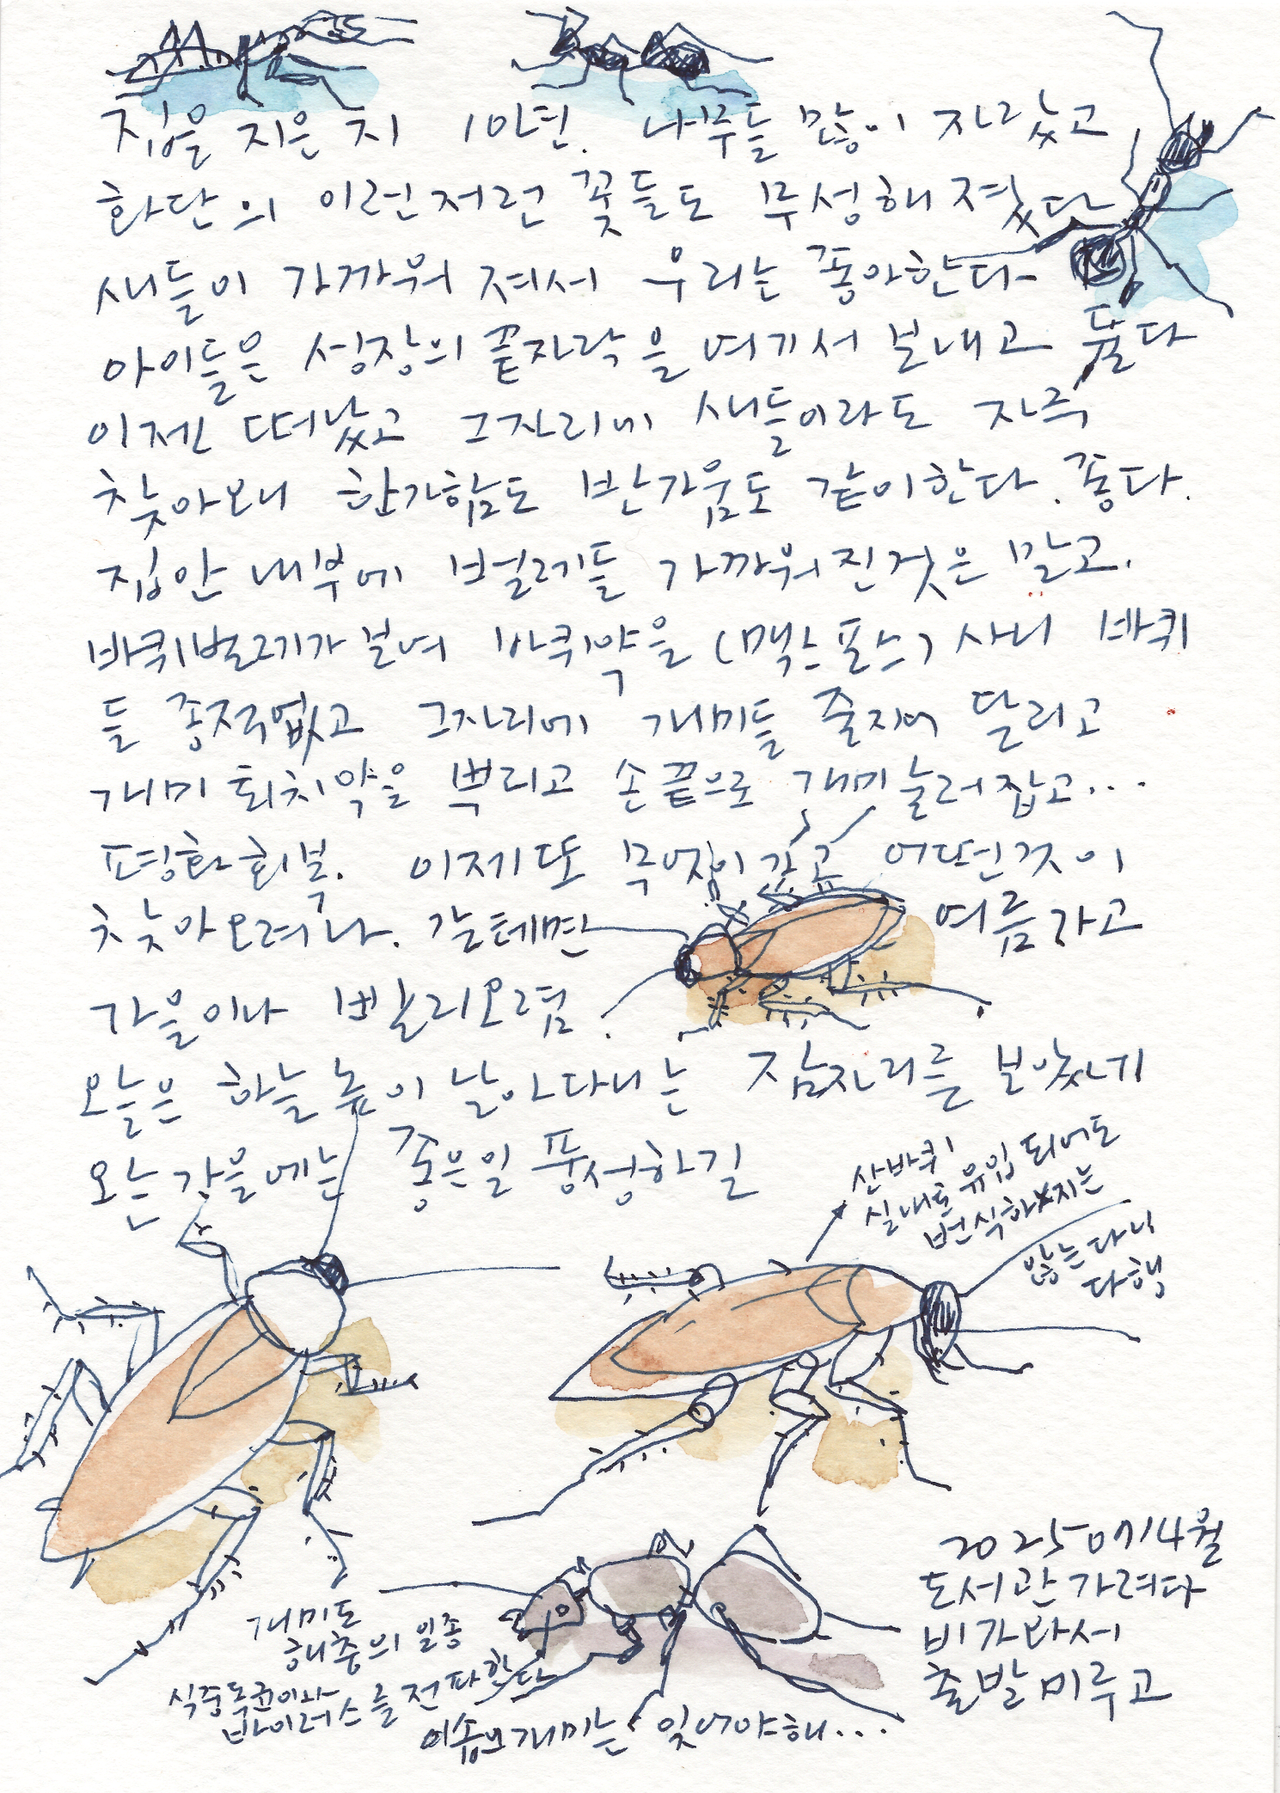 집을 지은 지 10년. 나무들 많이 자랐고
화단의 이런저런 꽃들도 무성해졌다
새들이 가까워 져서 우리는 좋아한다
아이들은 성장의 끝자락을 여기서 보내고 둘다
이젠 떠났고 그자리에 새들이라도 자주
찾아와 한가함도 반가움도 같이한다. 좋다.
집안 내부에 벌레들 가까워진것은 말고.
바퀴벌레가 보여 바퀴약을 (맥스포스) 사니 바퀴
들 종적없고 그자리에 개미들 줄지어 달리고
개미 퇴치약을 뿌리고 손끝으로 개미 눌러잡고...
평화회복. 이제 또 무엇이 가고 어떤것이
찾아오려나. 갈테면 여름가고
가을이나 빨리오렴.
오늘은 하늘 높이 날아다니는 잠자리를 보았네
오는 가을에는 좋은일 풍성하길
산바퀴
실내로 유입 되어도
번식하지는
않는다니
다행
개미도
해충의 일종
식중독균이나
바이러스를 전파한다
이솝의 개미는 잊어야해...
2025 0714월
도서관 가려다
비가와서
출발 미루고